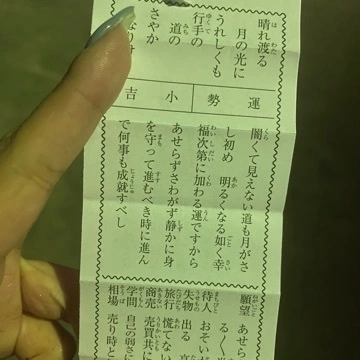 晴れ渡る
月の光に
うれしくも
行手の
道の
さやか
なりけ
運勢
小吉
闇くて見えない道も月がさ
し初め 明るくなる如く幸
福次第に加わる運ですから
あせらずさわがず静かに身
を守って進むべき時に進ん
で何事も成就すべし
願望 あせら
るく
待人 おそい
失物 出る
旅行 慌てな
商売 売買共に
学問 自己の弱さに
相場 売り時と